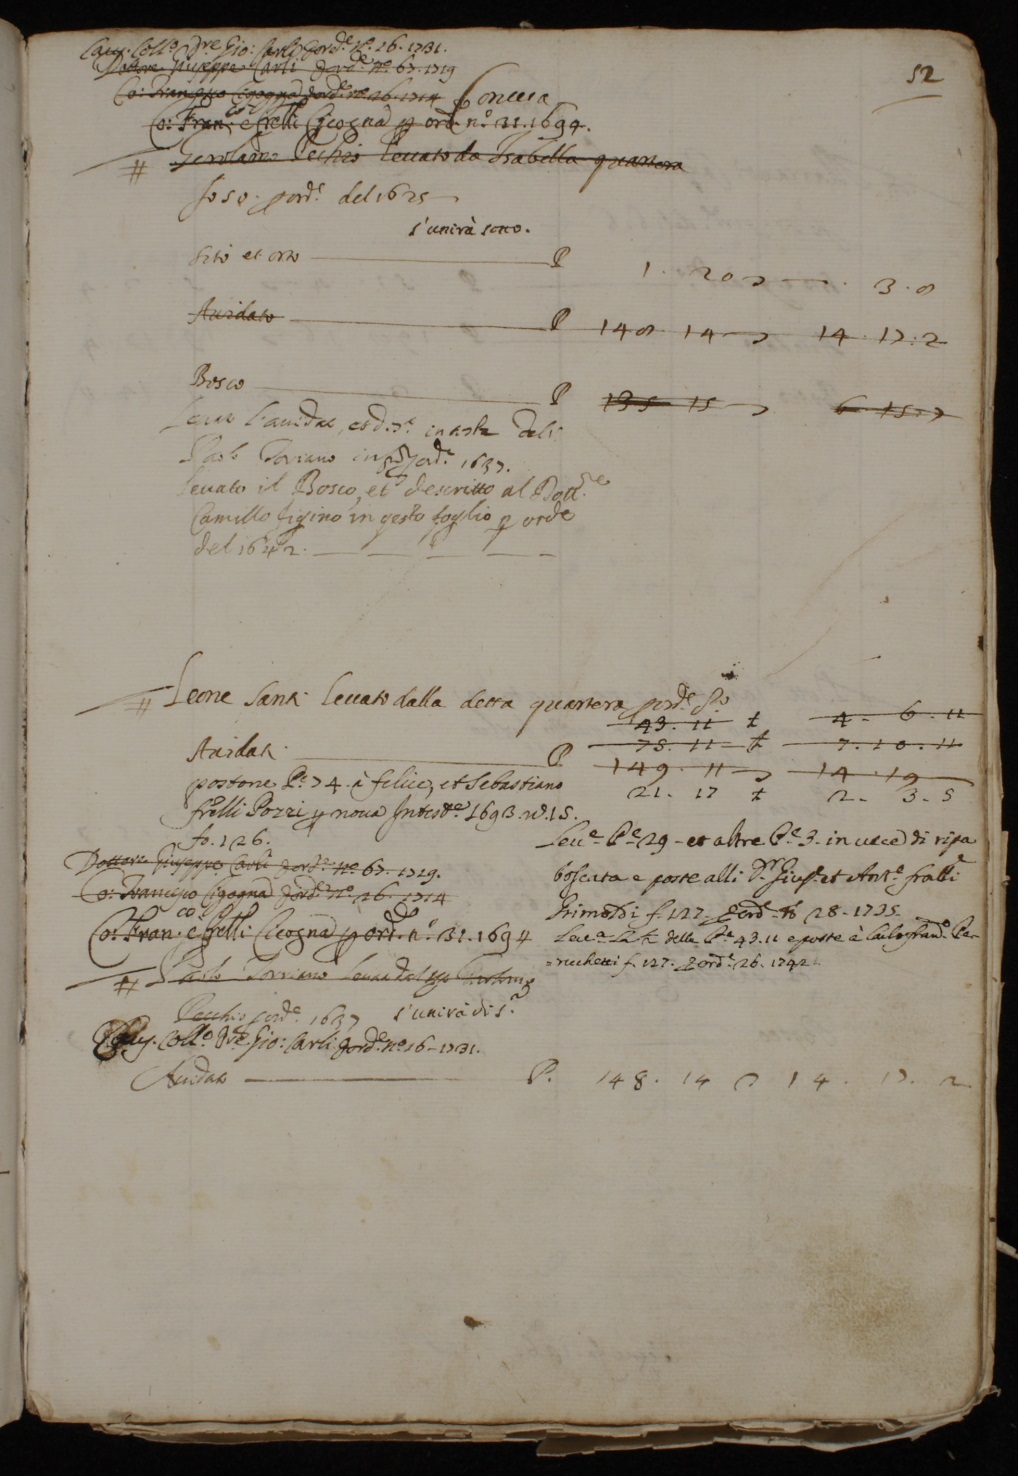 52
Cau. Coll.o Dre Gio: Carli p ord.e n.o 26. 1731.
Dottore Giuseppe Carli p ord.e n.o 67. 1719
Co: Francesco Cigogna p ord.e n.o 26. 1714
Conceca
Co: Fran.co e frelli Cicogna p ord. n.o 31. 1694.
# Gerolamo Pechio leuato da Isabella quartera
fo 50. p ord.e del 1625
s'unirà sono.
Sito et orto P 1. 20 3. 0
Auidato P 148 14 14. 17. 2
Bosco P 135 15 6. 15. 7
Leuo l'auidat,
Paolo Torriano in p ord.e 1637.
leuato il Bosco, et descritto al Dott.re
Camillo figino in questo foglio p orde
del 1642.
# Leone Santi leuato dalla detta quartera p ord.e
43. 11 4. 6. 11
75. 11 7. 10. 11
Auidat. P 149. 11 14. 19
21. 17 2. 3. 5
postone P.e 74 à felice, et Sebastiano
frelli Pozzi p noua Intest.e 1693. n.o 15.
fo. 126.
Leu.e P.e 29 - et altre P.e 3. in di ripa
boscata e poste alli Sri. Gius.e et Ant.o fratelli
Grimoldi f. 127. p ord.e n.o 28. 1735
Leu.e delle P.e 43. 11 e poste à Carlo Fran.co Pe-
=ruchetti f. 127. p ord.e 26. 1742
Dottore Giuseppe Carli p ord.e n.o 67. 1719.
Co: Francesco Cigogna p ord.e n.o 26. 1714
Co: Fran.co e frelli Cicogna p ord.e n.o 31. 1694
# Paolo Torriano
Pechio p ord.e 1637 s'unirà di s.a
Cau. Coll.o Dre. Gio: Carli p ord.e n.o 26. 1731.
Auidat P. 148. 14 14. 17. 2